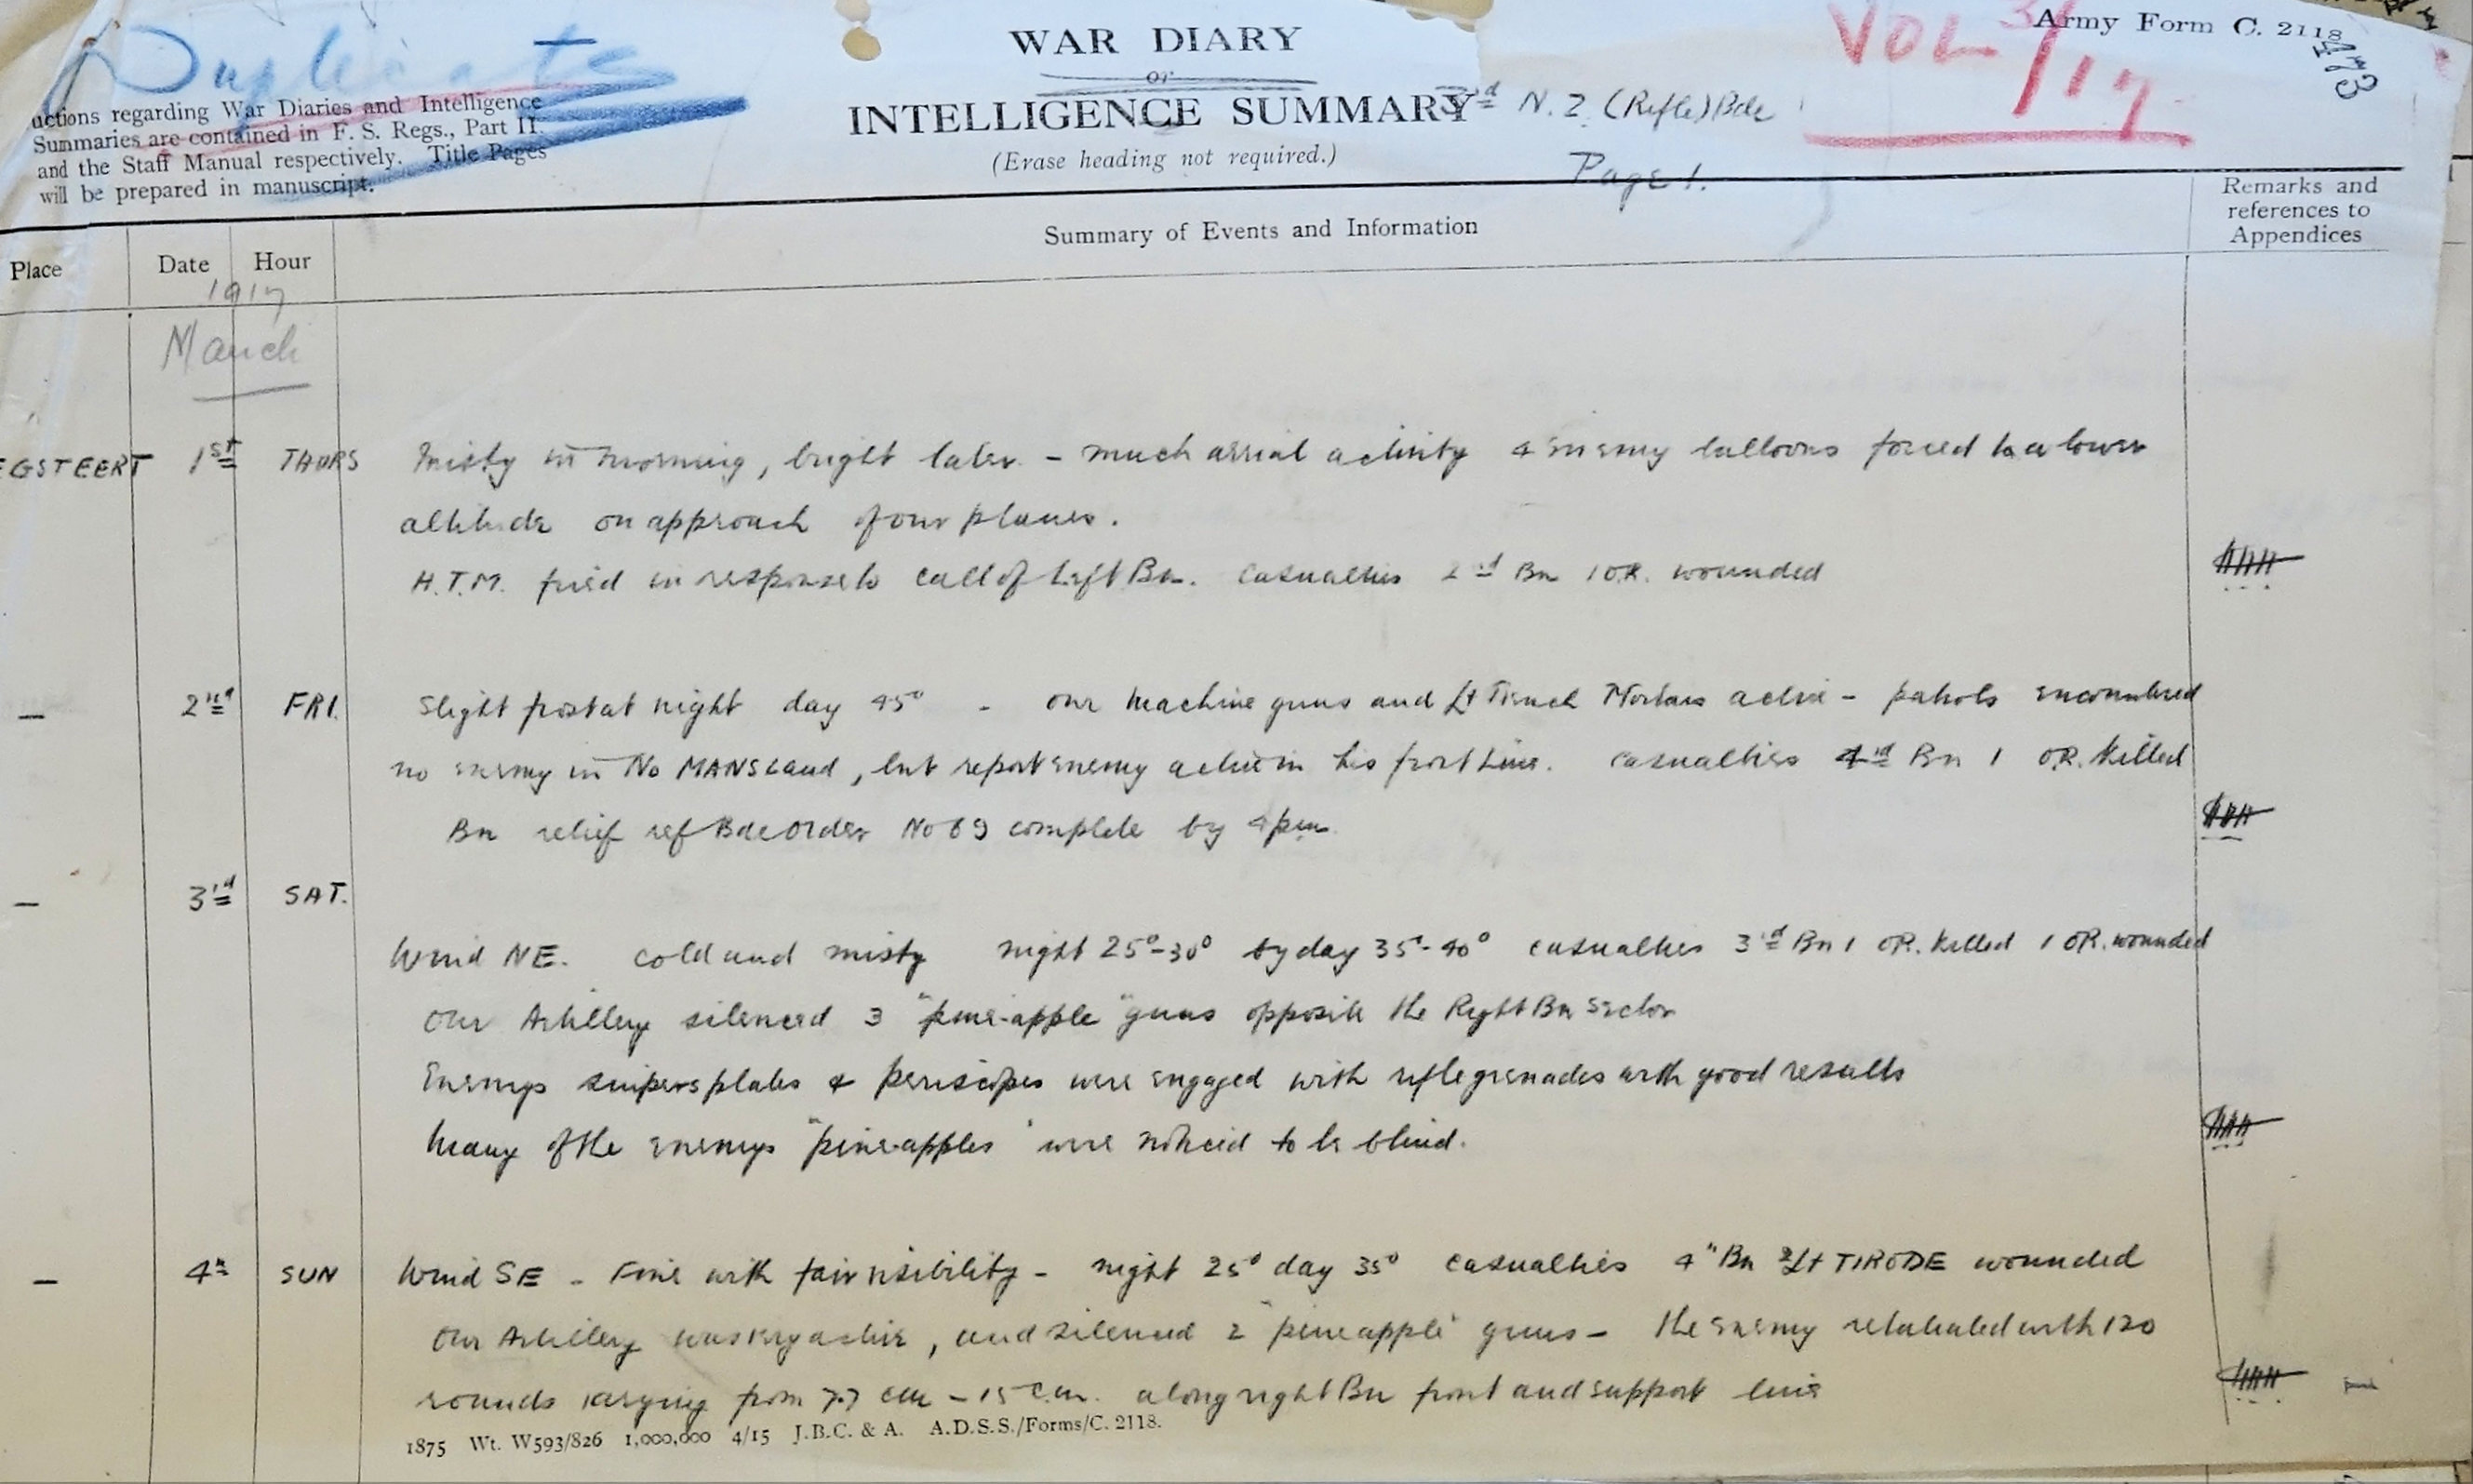 Duplicate
Army Form C. 2118
VOL 3/17
473
WAR DIARY
or
INTELLIGENCE SUMMARY
3rd N.Z (Rifle) Bde
(Erase heading not required.)
Page 1.
uctions regarding War Diaries and Intelligence
Summaries are contained in F. S. Regs., Part II.
and the Staff Manual respectively. Title Pages
will be prepared in manuscript.
Place Date Hour Summary of Events and Information Remarks and
references to
Appendices
1917
March
EGSTEERT 1st THURS Misty in morning, bright later - much aerial activity 4 enemy balloons forced to a lower
altitude on approach of our planes.
H.T.M. fired in response to call of Left Bn. Casualties 2nd Bn 1 OR. wounded
— 2nd FRI. Slight frost at night day 45° - our machine guns and Lt Trench Mortars active - patrols encountered
no enemy in No MANS Land, but report enemy active in his front line. Casualties Bn 1 OR. killed
Bn relief ref Bde Order No 69 complete by 4 pm.
— 3rd SAT.
Wind NE. cold and misty night 25°-30° by day 35°-40° casualties 3rd Bn 1 OR. killed 1 OR. wounded
Our Artillery silenced 3 "pine-apple" guns opposite the Right Bn Sector
Enemys snipers plates & periscopes were engaged with rifle grenades with good results
Many of the enemys "pineapples" were noticed to be blind.
— 4th SUN Wind SE - Fine with fair visibility - night 25° day 35° casualties 4th Bn 2/Lt TIRODE wounded
Our Artillery was very active, and silenced 2 "pineapple" guns - The enemy retaliated with 120
rounds varying from 7.7 cm - 15 c.m. along right Bn front and support line
1875 Wt. W593/826 1,000,000 4/15 J.B.C. & A. A.D.S.S./Forms/C. 2118.